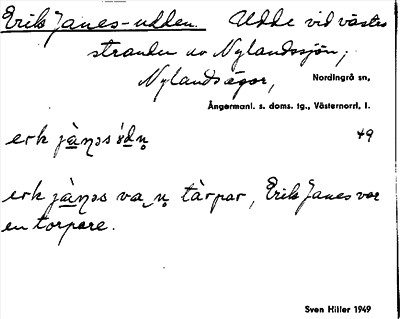 Erik Janes-udden. Udde vid västra
stranden av Nylandssjön,
Nylands ägor, Nordingrå sn,
Ångermanl. s. doms. tg., Västernorrl. l.
49
erk jànǝs va n̥ tàrpar, Erik Janes var
en torpare.
Sven Hiller 1949